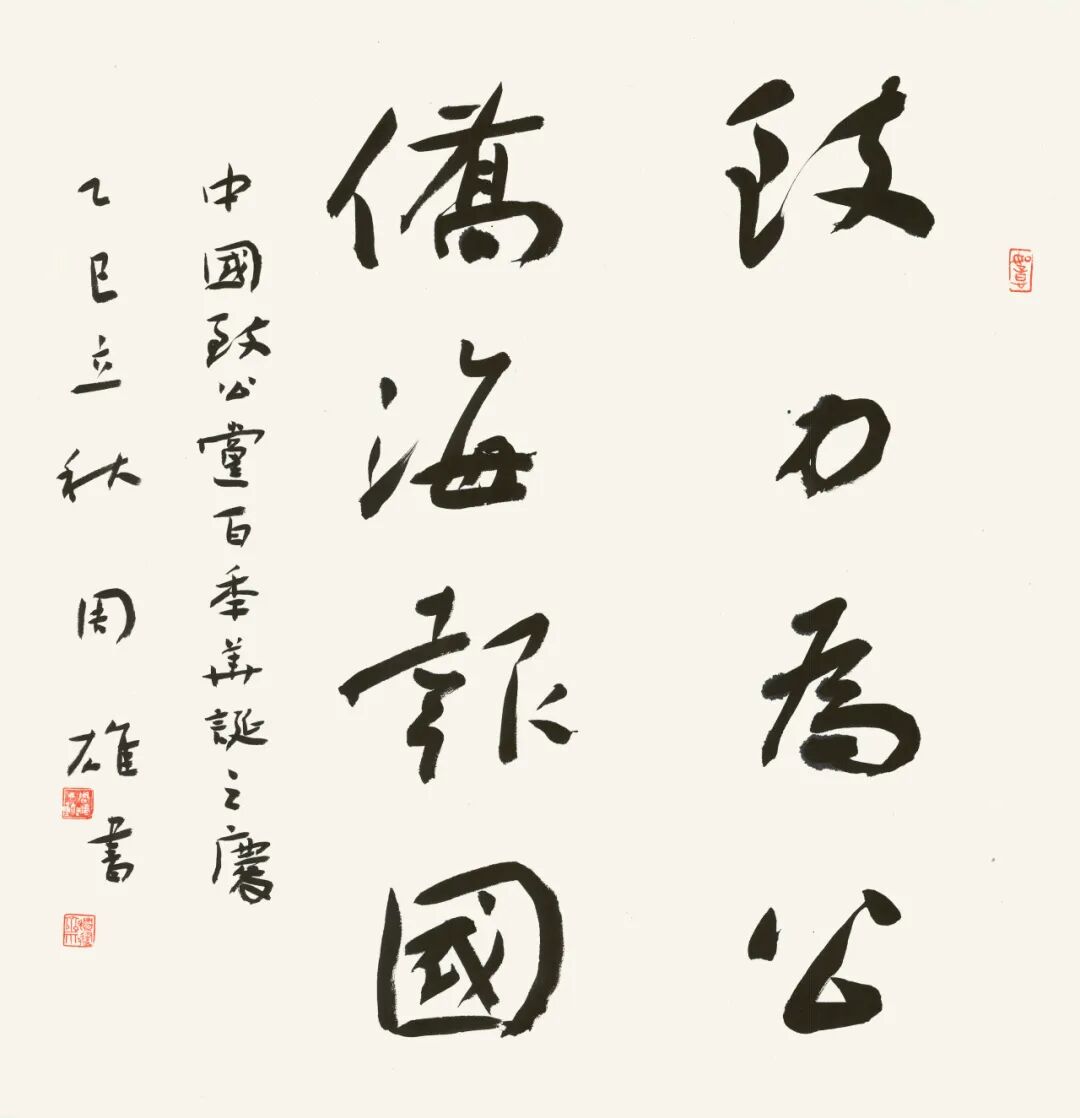 致力為公
僑海報國
中國致公黨百年華誕之慶
乙巳立秋 周雄書